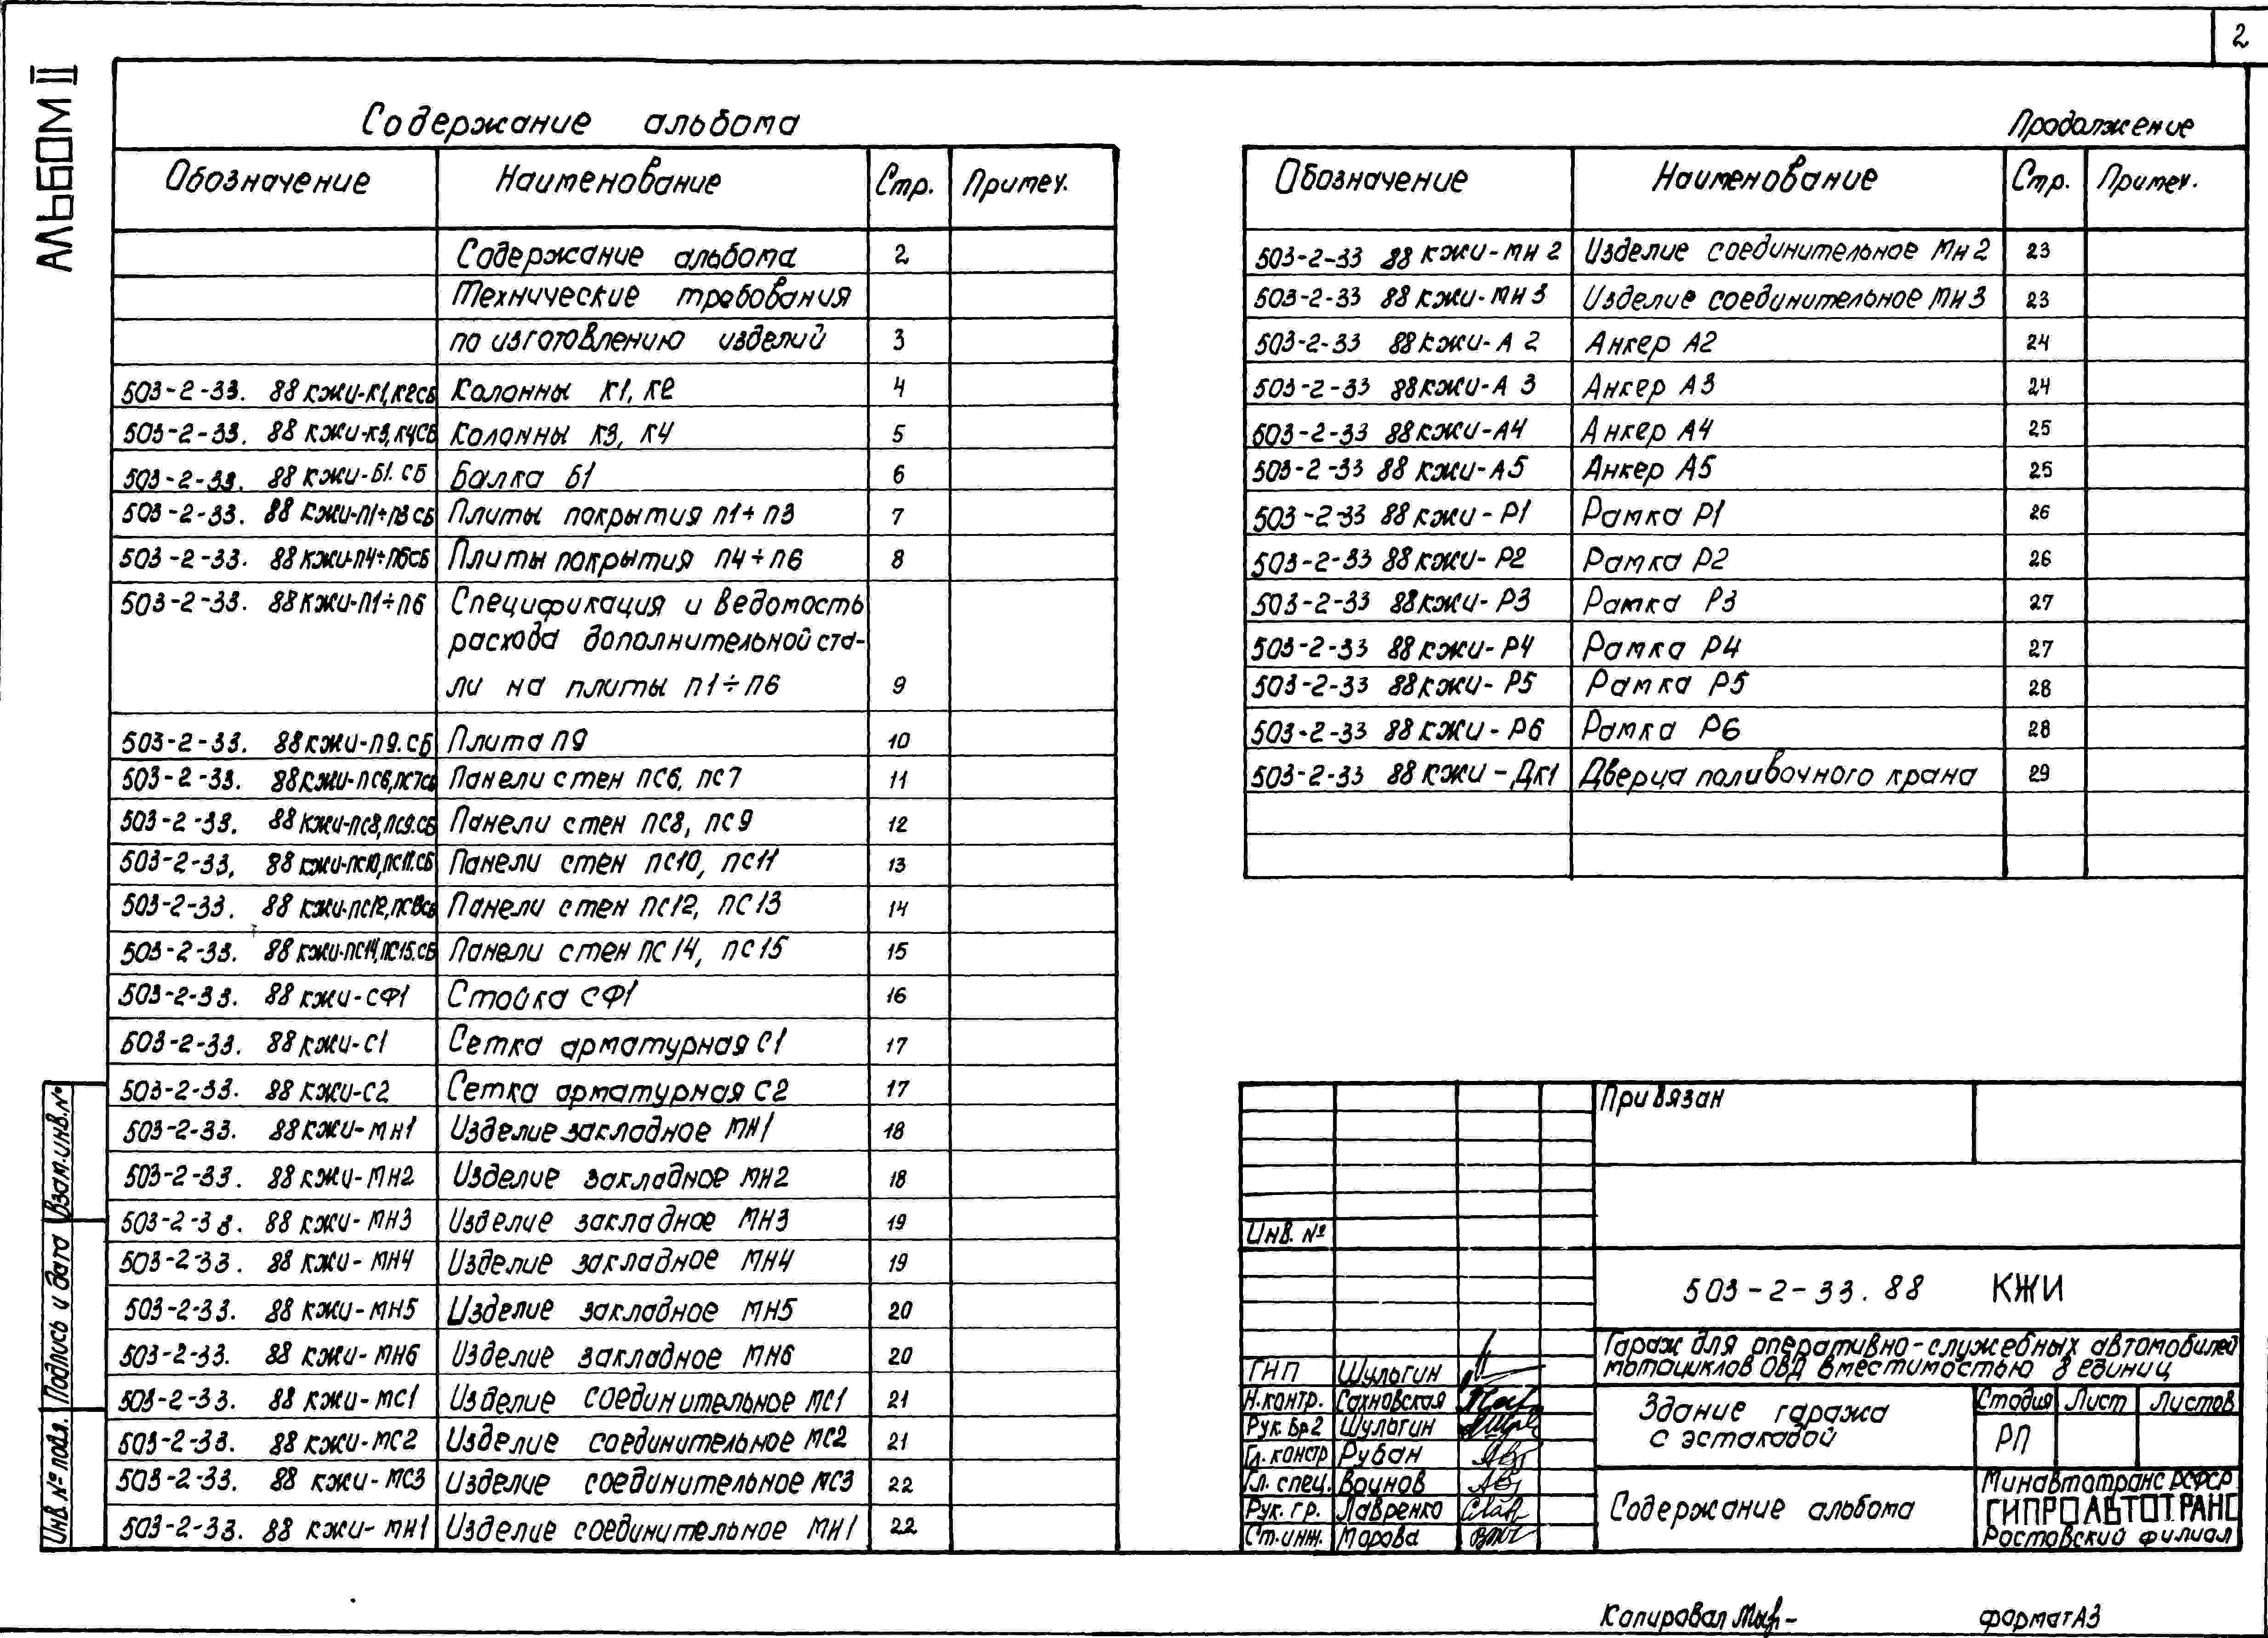 2
АЛЬБОМ II
Содержание альбома
Обозначение Наименование Стр. Примеч.
Содержание альбома 2
Технические требования
по изготовлению изделий 3
503-2-33. 88 КЖИ-К1,К2СБ Колонны К1, К2 4
503-2-33. 88 КЖИ-К3,К4СБ Колонны К3, К4 5
503-2-33. 88 КЖИ-Б1.СБ Балка Б1 6
503-2-33. 88 КЖИ-П1÷П3СБ Плиты покрытия П1÷П3 7
503-2-33. 88 КЖИ-П4÷П6СБ Плиты покрытия П4÷П6 8
503-2-33. 88 КЖИ-П1÷П6 Спецификация и ведомость
расхода дополнительной ста-
ли на плиты П1÷П6 9
503-2-33. 88 КЖИ-П9.СБ Плита П9 10
503-2-33. 88 КЖИ-ПС6,ПС7СБ Панели стен ПС6, ПС7 11
503-2-33. 88 КЖИ-ПС8,ПС9.СБ Панели стен ПС8, ПС9 12
503-2-33. 88 КЖИ-ПС10,ПС11.СБ Панели стен ПС10, ПС11 13
503-2-33. 88 КЖИ-ПС12,ПС13СБ Панели стен ПС12, ПС13 14
503-2-33. 88 КЖИ-ПС14,ПС15.СБ Панели стен ПС14, ПС15 15
503-2-33. 88 КЖИ-СФ1 Стойка СФ1 16
503-2-33. 88 КЖИ-С1 Сетка арматурная С1 17
503-2-33. 88 КЖИ-С2 Сетка арматурная С2 17
503-2-33. 88 КЖИ-МН1 Изделие закладное МН1 18
503-2-33. 88 КЖИ-МН2 Изделие закладное МН2 18
503-2-33. 88 КЖИ-МН3 Изделие закладное МН3 19
503-2-33. 88 КЖИ-МН4 Изделие закладное МН4 19
503-2-33. 88 КЖИ-МН5 Изделие закладное МН5 20
503-2-33. 88 КЖИ-МН6 Изделие закладное МН6 20
503-2-33. 88 КЖИ-МС1 Изделие соединительное МС1 21
503-2-33. 88 КЖИ-МС2 Изделие соединительное МС2 21
503-2-33. 88 КЖИ-МС3 Изделие соединительное МС3 22
503-2-33. 88 КЖИ-МН1 Изделие соединительное МН1 22
Продолжение
Обозначение Наименование Стр. Примеч.
503-2-33 88 КЖИ-МН 2 Изделие соединительное МН2 23
503-2-33 88 КЖИ-МН 3 Изделие соединительное МН3 23
503-2-33 88 КЖИ-А 2 Анкер А2 24
503-2-33 88 КЖИ-А 3 Анкер А3 24
503-2-33 88 КЖИ-А4 Анкер А4 25
503-2-33 88 КЖИ-А5 Анкер А5 25
503-2-33 88 КЖИ-Р1 Рамка Р1 26
503-2-33 88 КЖИ-Р2 Рамка Р2 26
503-2-33 88 КЖИ-Р3 Рамка Р3 27
503-2-33 88 КЖИ-Р4 Рамка Р4 27
503-2-33 88 КЖИ-Р5 Рамка Р5 28
503-2-33 88 КЖИ-Р6 Рамка Р6 28
503-2-33 88 КЖИ-ДК1 Дверца поливочного крана 29
Привязан
Инв. №
503-2-33.88 КЖИ
Гараж для оперативно-служебных автомобилей
мотоциклов ОВД вместимостью 8 единиц
ГНП Шулогин
Н.контр. Сахновская
Рук.Бр2 Шулогин
Гл. констр Рубан
Гл. спец. Воинов
Рук. гр. Лавренко
Ст.инж. Морова
Здание гаража
с эстакадой
Стадия Лист Листов
РП
Содержание альбома
Минавтотранс РСФСР
ГИПРОАВТОТРАНС
Ростовский филиал
Инв.№ подл. Подпись и дата Взам.инв.№
Копировал
формат А3